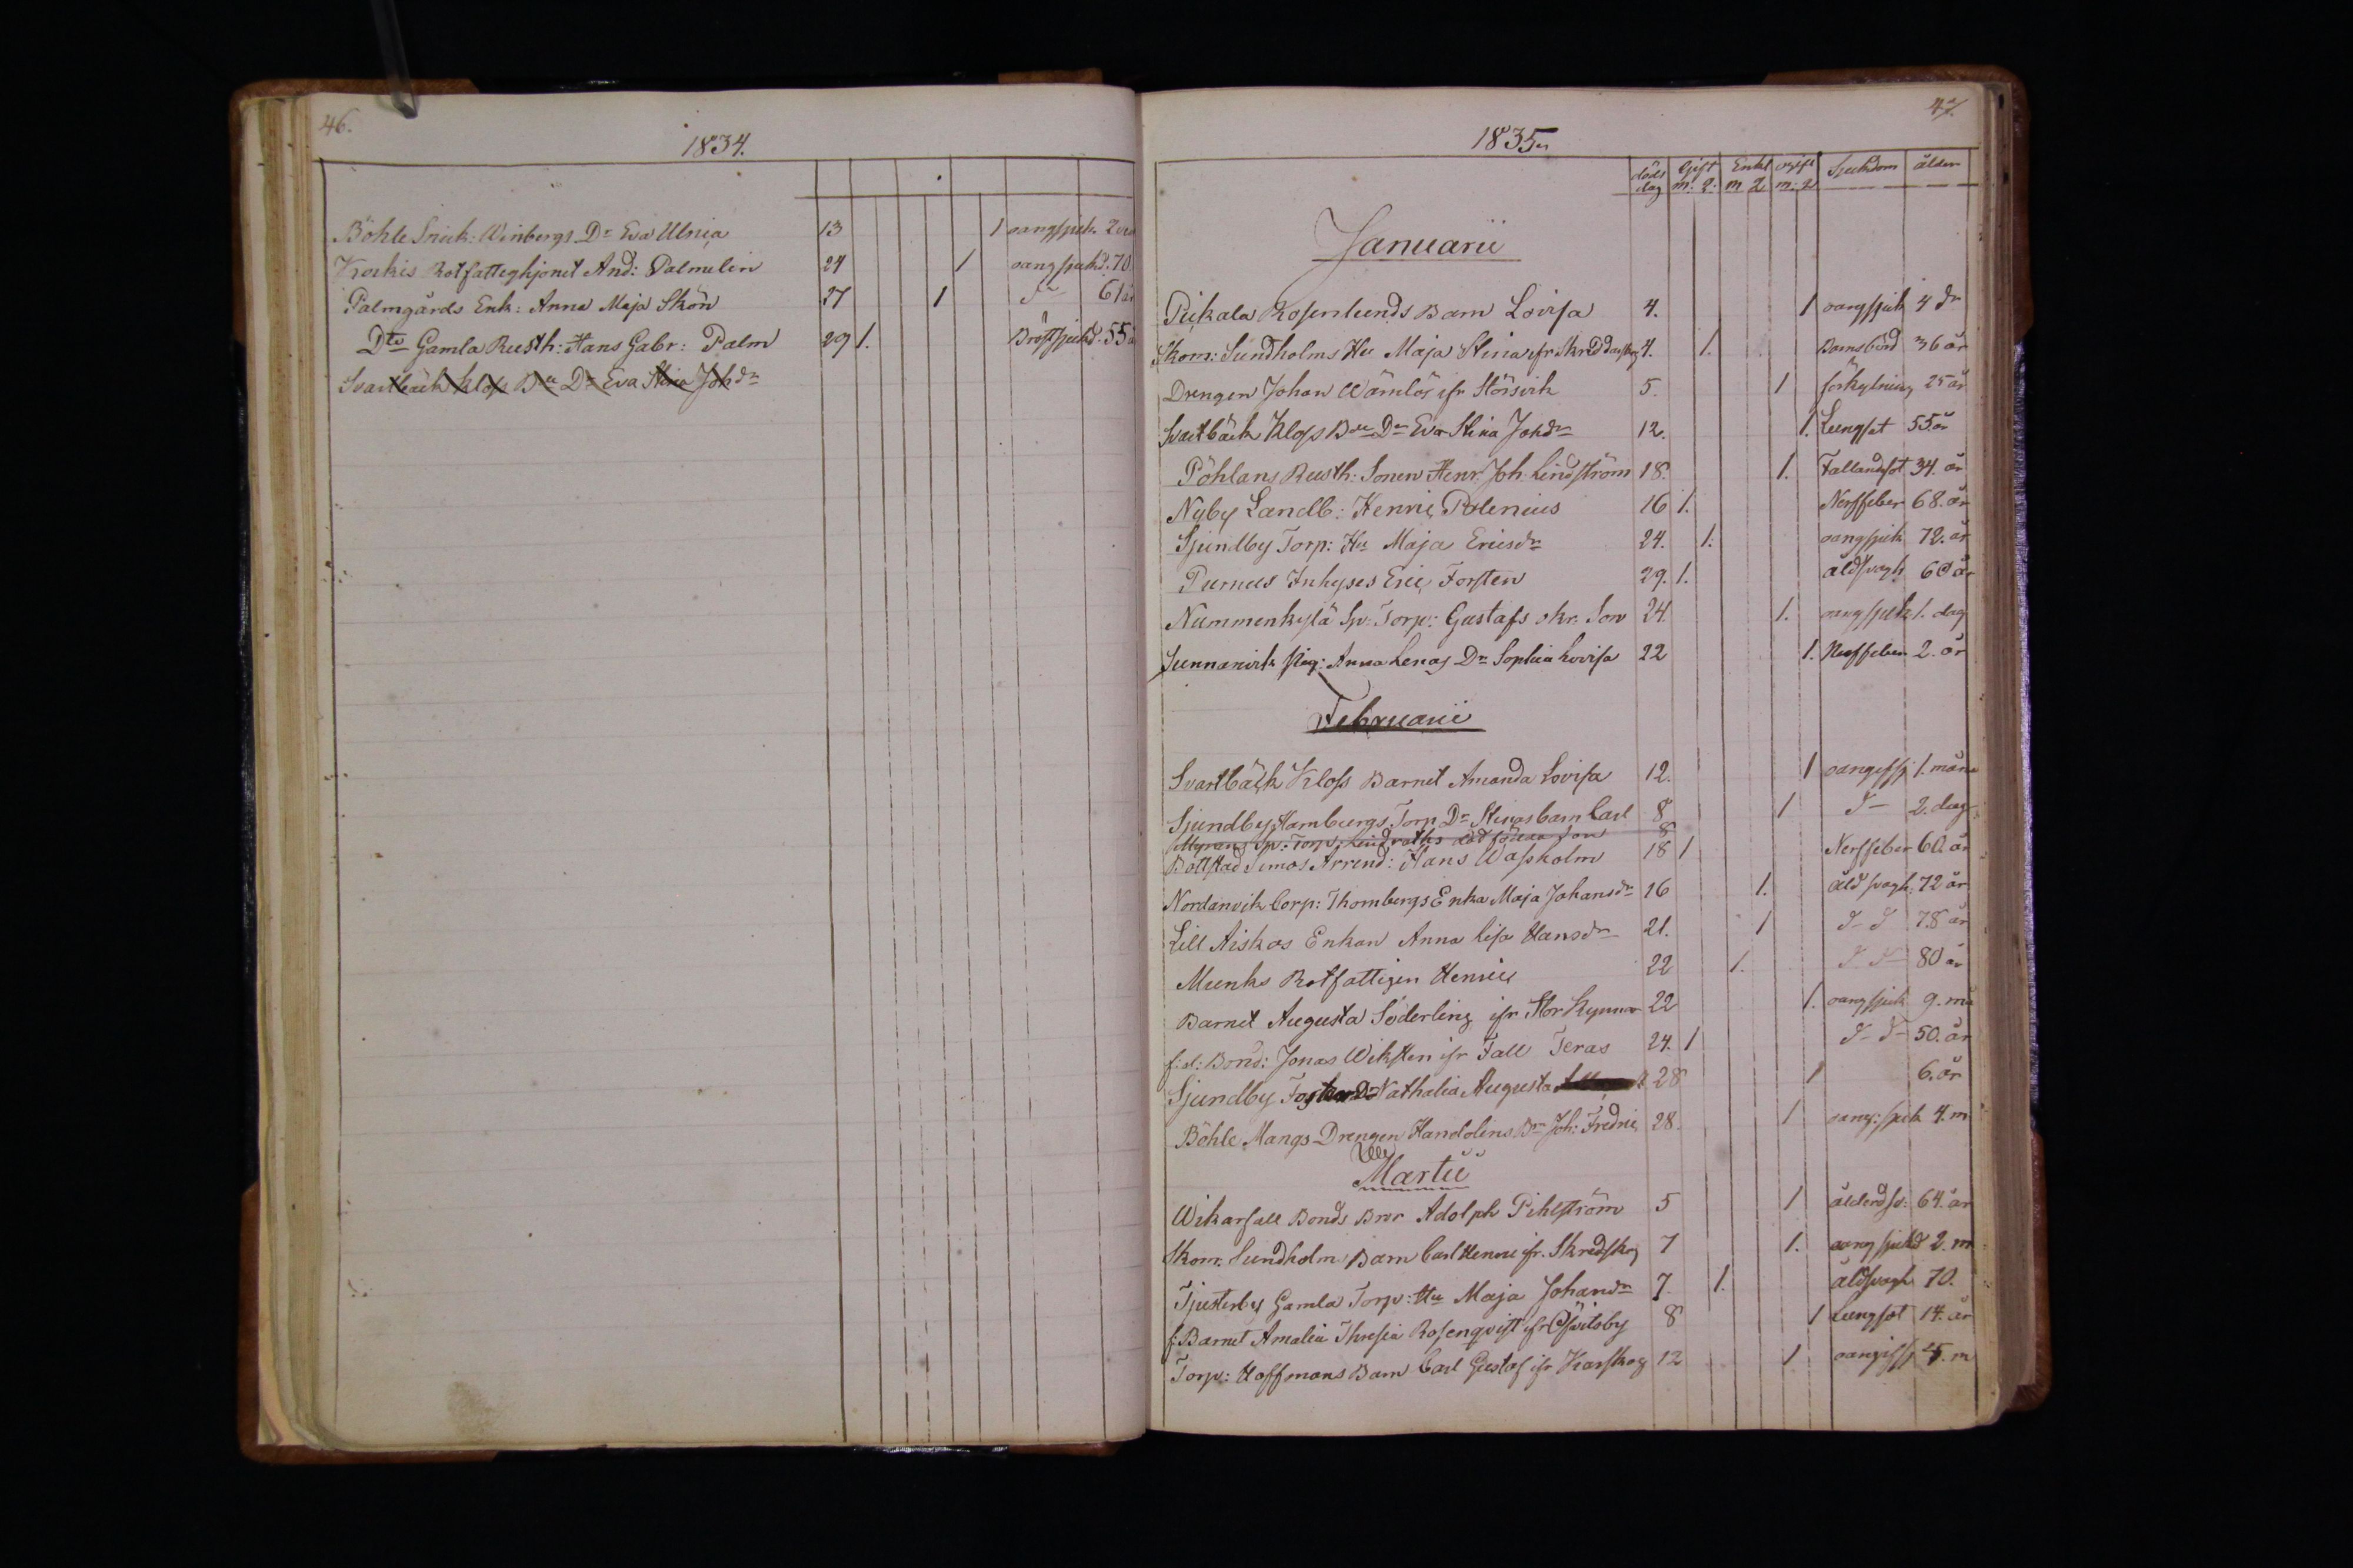 46.
1834.
Böhle Snick: Winbergs Dr Eva Ulrica 13 1 oangsjuk. 2
Korkis Rotfatteghjonet And: Palmelin 24 1 oangsjukd. 70
Palmgårds Enk: Anna Maja Skön 27 1 Dto 61 år
Dto Gamla Rusth: Hans Gabr: Palm 29 1. Bröstsjukd. 55
Svartbäck Kloss Bde Dr Eva Stina Johdr
47.
1835
döds dag Gift m. q. Enkl m q ogift m. q Sjukdom ålder
Januarii
Pickala Rosenlunds Barn Lovisa 4. 1 oangsjuk 4 dr
Skom: Sundholms Hu Maja Stina ifr Skreddarskog 4. 1. Barnsbörd 36 år
Drengen Johan Wämlös ifr Störsvik 5. 1 förkylning 25 år
Svartbäck Kloss Bde Dr Eva Stina Johdr 12. 1. Lungsot 55 år
Pöhlans Rusth: Sonen Henr. Joh. Lindström 18. 1. Fallandsot 34. år
Nyby Landb: Henric Polenius 16 1. Nerffeber 68. år
Sjundby Torp: Hu Maja Ericsdr 24. 1. oangsjuk 72. år
Purnus Inhyses Eric Forsten 29. 1. åldsvagh 60 år
Nummenkylä Sp. Torp: Gustafs okr. Son 24. 1. oangsjuk 1. dag
Sunnanvik Pig: Anna Lenas Dr Sophia Lovisa 22 1. Nerffeber 2. år
Februarii
Svartbäck Kloss Barnet Amanda Lovisa 12. 1 oangifsj 1. mån
Sjundby Hambergs Torp Dr Stinas barn Carl 8 1 D- 2. dag
Myrans Sp: Torp: Lindroths död födda son 8
Böllstad Simos Arrend: Hans Wassholm 18 1 Nerffeber 60. år
Nordanvik Corp: Thombergs Enka Maja Johansdr 16 1. åldsvagh: 72 år
Lill Aiskos Enkan Anna Lisa Hansdr 21. 1 D- D 78 år
Munks Rotfattigen Henric 22 1. D- D- 80 år
Barnet Augusta Söderling ifr Stor Kynnar 22 1. oangsjuk 9. må
f: d: Bond: Jonas Wiksten ifr Fall Teras 24. 1 D- D- 50. år
Sjundby Foster Dr Nathalia Augusta 28 1 6. år
Böhle Mangs Drengen Handolins Br Joh: Fredric 28. 1 oang: sjuk 4. m
Martii
Wikarsall Bonds Bror Adolph Pihlström 5 1 ålderdsv: 64. år
Skom. Sundholms Barn Carl Henric ifr. Skredskog 7 1. oangsjukd 2. m
Tjusterby Gamla Torp: Hu Maja Johandr 7. 1. åldsvagh 70.
f: Barnet Amalia Thresia Rosenqvist ifr Öfvitsby 8 1 Lungsot 14. år
Torp: Hoffmans Barn Carl Gustaf ifr Karskog 12 1 oangifsj 5. m